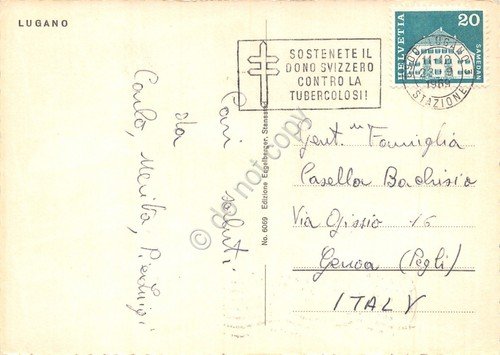 LUGANO
Cari saluti
da
Carlo, Merita, Pierluigi
No. 6069 Edizione Engelberger, Stansstad
SOSTENETE IL
DONO SVIZZERO
CONTRO LA
TUBERCOLOSI!
HELVETIA
20
SAMEDAN
LUGANO 3
1969
STAZIONE
Gent.ma Famiglia
Casella Bachisio
Via 16
Genova (Pegli)
ITALY
do not copy